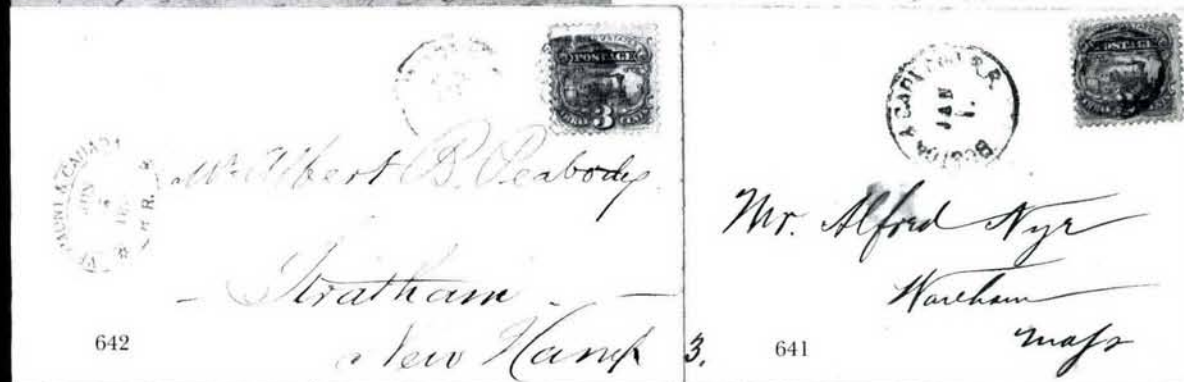 POSTAGE
3
VERMONT & CANADA R.R.
JUN
Mr Albert B. Peabody
- Stratham -
New Hamp
642
POSTAGE
BOSTON & CAPE COD R.R.
JAN
Mr. Alfred Nye
Wareham
Mass
3.
641